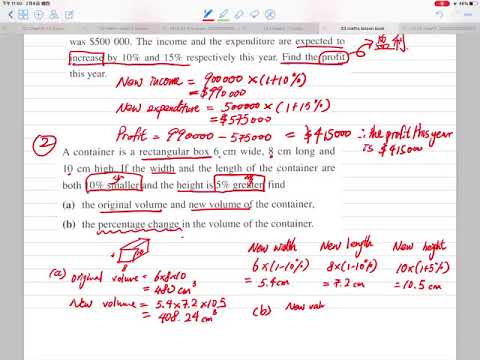 was $500 000. The income and the expenditure are expected to
increase by 10% and 15% respectively this year. Find the profit
盈利
this year.
New income = 900000 × (1+10%)
= $990000
New expenditure = 500000 × (1+15%)
= $575000
Profit = 990000 - 575000 = $415000 ∴ the profit this year
is $415000
②
A container is a rectangular box 6 cm wide, 8 cm long and
10 cm high. If the width and the length of the container are
both 10% smaller and the height is 5% greater, find
(a) the original volume and new volume of the container,
(b) the percentage change in the volume of the container.
(a) original volume = 6×8×10
= 480 cm³
New volume = 5.4 × 7.2 × 10.5
= 408.24 cm³
New width New length New height
6×(1-10%) 8×(1-10%) 10×(1+5%)
= 5.4cm = 7.2 cm = 10.5 cm
(b) New